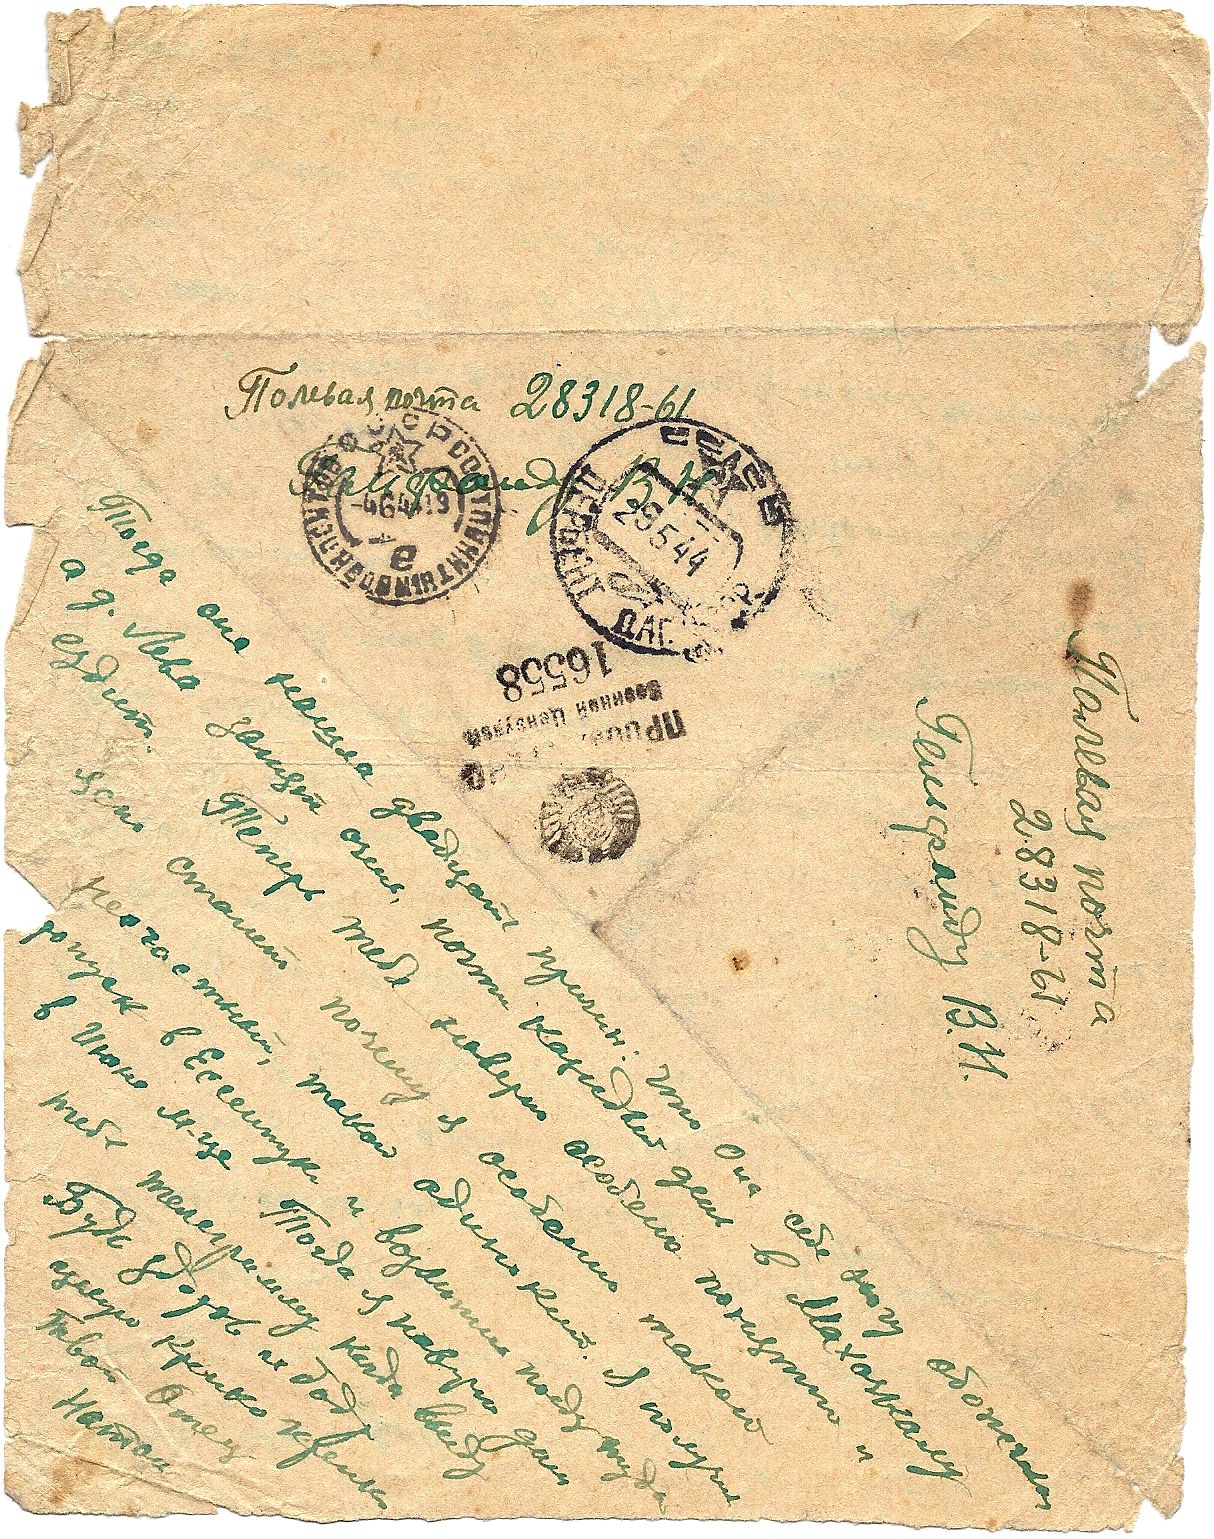 Полевая почта 28318-61
Гельфанду В.Н.
СССР
-4 6 44 19
е
СССР
29 5 44
ДАГ.
Просмотрено
Военной Цензурой
16558
Полевая почта
28318-61
Гельфанду В.Н.
Тогда она нашла двадцать причин: что она себе ногу обожгла
а д. Лёва занят очень, почти каждый день в Махачкалу
ездит. Теперь тебе наверно особено понятно и
ясно станет почему я особено такой
несчастный, такой одинокий. Я получил
допуск в Ессентуки и возможно поеду туда
в Июне м-це Тогда я наверно дам
тебе телеграмму когда выеду
Будь здоров и бодр
целую крепко крепко
твой Отец
Натан